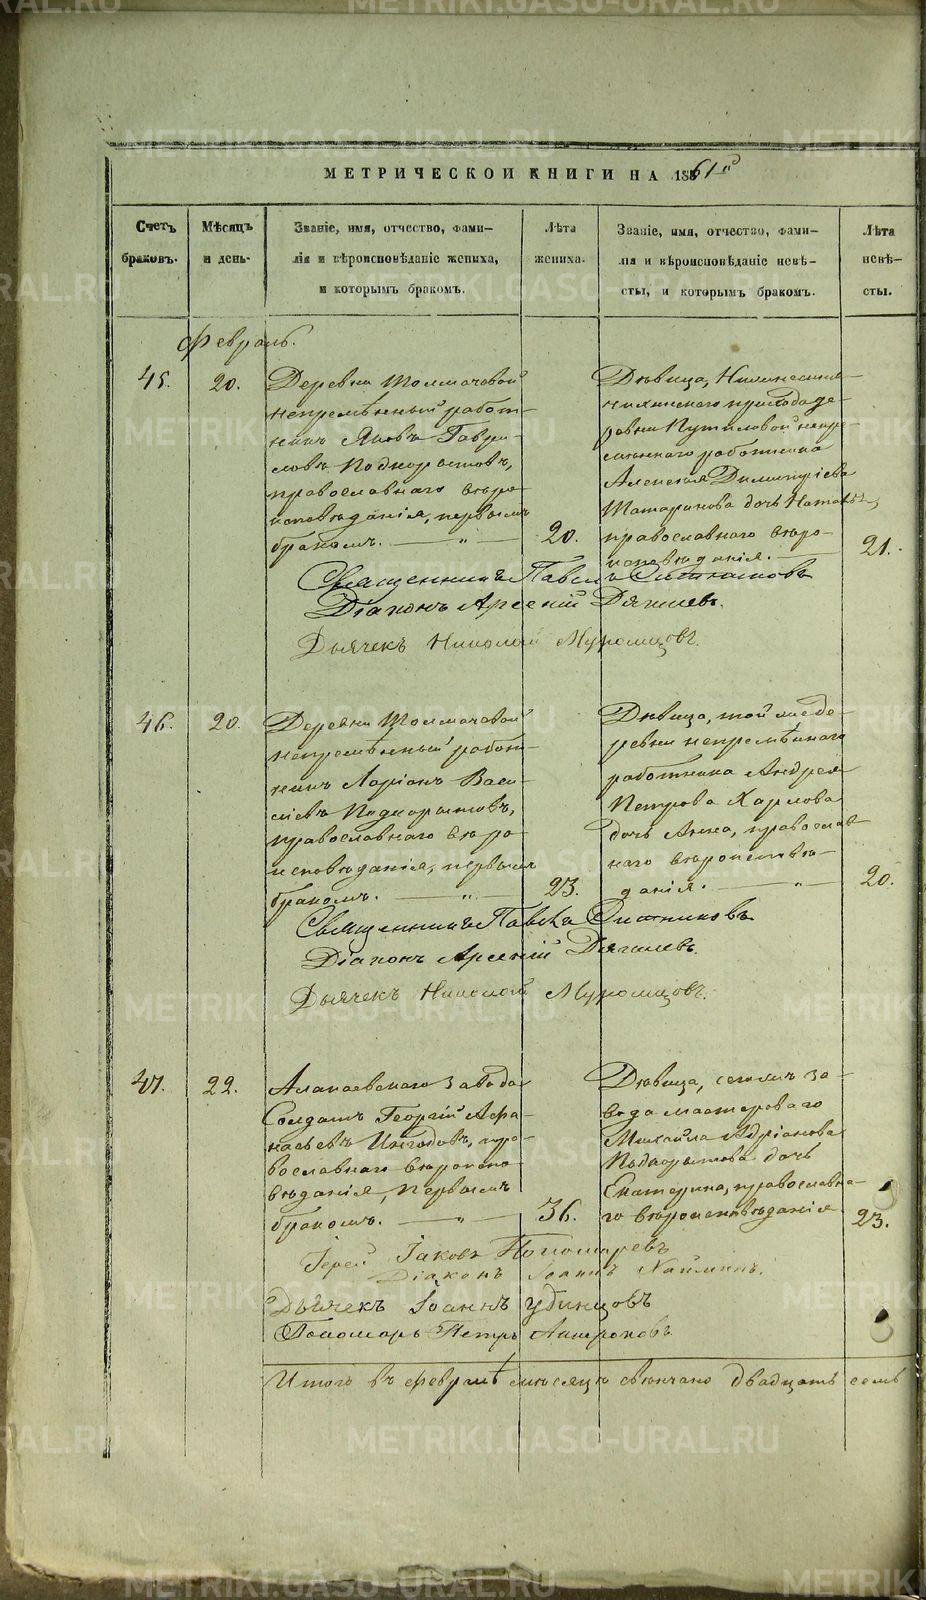 МЕТРИЧЕСКОЙ КНИГИ НА 1861й
Счетъ браковъ.
Мѣсяцъ и день.
Званіе, имя, отчество, фами-
лія и вѣроисповѣданіе жениха,
и которымъ бракомъ.
Лѣта жениха.
Званіе, имя, отчество, фами-
лія и вѣроисповѣданіе невѣ-
сты, и которымъ бракомъ.
Лѣта невѣ-
сты.
Февраль.
45.
20.
Деревни Толмачовой
непремѣнный работ-
никъ Яковъ Гаври-
ловъ Подкорытовъ,
православнаго вѣро-
исповѣданія, первымъ
бракомъ. — „ —
20.
Дѣвица, Нижнесиня-
чихинскаго прихода де-
ревни Путиловой непре-
мѣннаго работника
Алексѣя Димитріева
Татаринова дочь Наталья,
православнаго вѣро-
исповѣданія. —
21.
Священникъ Павелъ Ситниковъ
Діаконъ Арсеній Дягилевъ.
Дьячекъ Николай Муромцовъ.
46.
20.
Деревни Толмачовой
непремѣнный работ-
никъ Ларіонъ Васи-
ліевъ Подкорытовъ,
православнаго вѣро-
исповѣданія, первымъ
бракомъ. — „ —
23.
Дѣвица, той же де-
ревни непремѣннаго
работника Андрея
Петрова Харлова
дочь Анна, православ-
наго вѣроисповѣ-
данія. — „ —
20.
Священникъ Павелъ Ситниковъ
Діаконъ Арсеній Дягилевъ.
Дьячекъ Николай Муромцовъ.
47.
22.
Алапаевскаго завода
Солдатъ Георгій Афа-
насьевъ Ингодовъ, пра-
вославнаго вѣроиспо-
вѣданія, первымъ
бракомъ. — „ —
36.
Дѣвица, сегожъ за-
вода мастероваго
Михайла Адріанова
Подкорытова дочь
Екатерина, православна-
го вѣроисповѣданія
23.
Іерей Іаковъ Пономаревъ
Діаконъ Іоаннъ
Дьячекъ Іоаннъ Удинцовъ
Пономарь Петръ Антроповъ
Итого въ Февралѣ мѣсяцѣ вѣнчано двадцать семь
METRIKI.GASO-URAL.RU